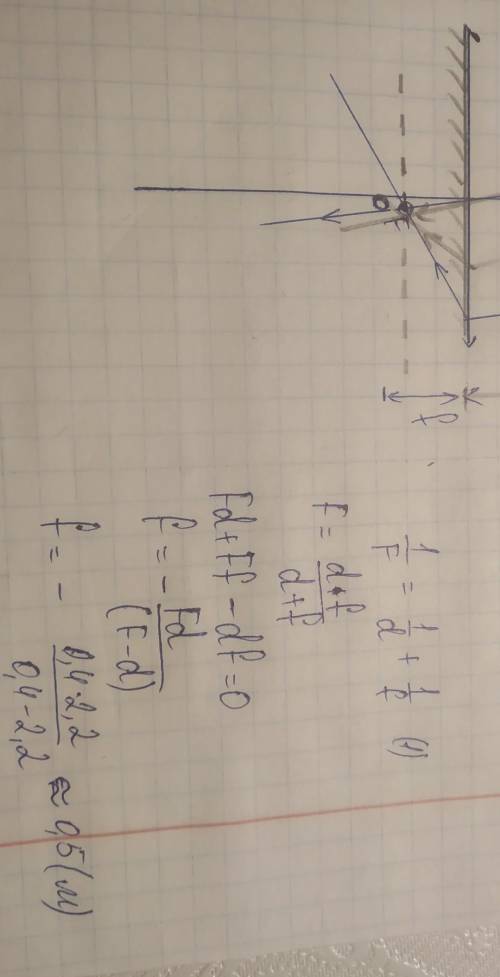 F
O
f
1/F = 1/d + 1/f (1)
F = d·f/(d+f)
Fd + Ff - df = 0
f = - Fd/(F-d)
f = - 0,4·2,2/(0,4-2,2) ≈ 0,5 (м)